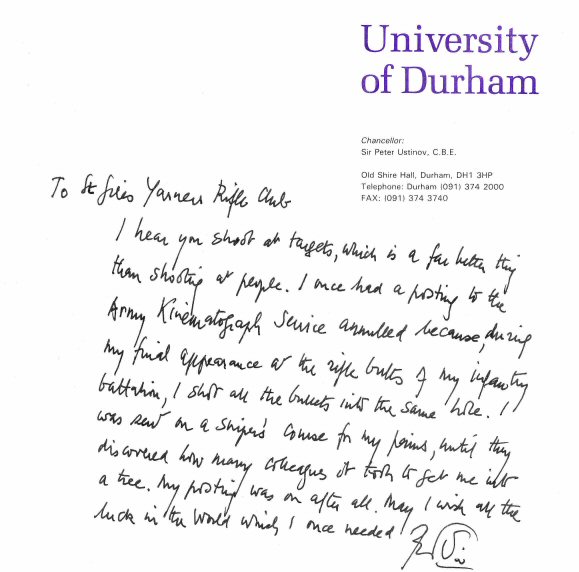 University
of Durham
Chancellor:
Sir Peter Ustinov, C.B.E.
Old Shire Hall, Durham, DH1 3HP
Telephone: Durham (091) 374 2000
FAX: (091) 374 3740
To St Giles Yarners Rifle Club
I hear you shoot at targets, which is a far better thing
than shooting at people. I once had a posting to the
Army Kinematograph Service annulled because, during
my final appearance at the rifle butts of my infantry
battalion, I shot all the bullets into the same hole. I
was sent on a sniper's course for my pains, until they
discovered how many colleagues it took to get me into
a tree. My posting was on after all. May I wish all the
luck in the World which I once needed